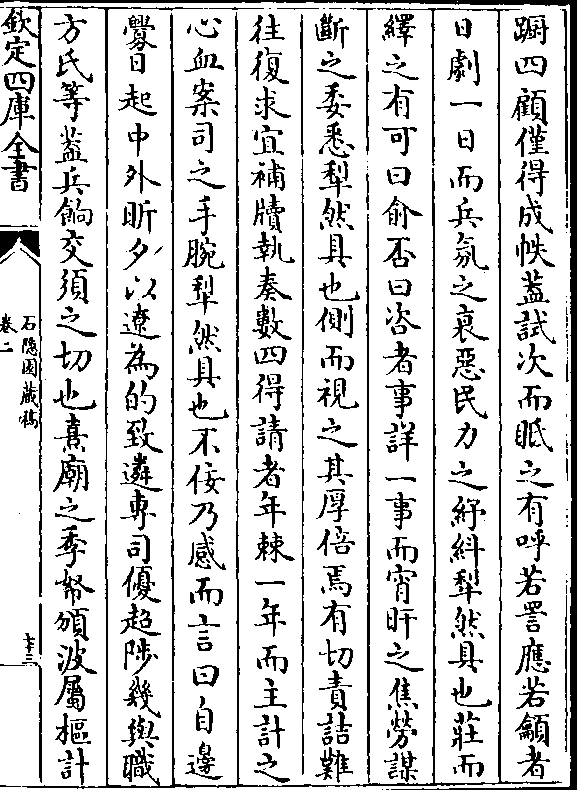 蹰四顧僅得成帙葢試次而眡之有呼若詈應若龥者
日劇一日而兵氛之衺惡民力之紓紏犁然具也莊而
繹之有可曰俞否曰咨者事詳一事而宵旰之焦勞謀
斷之委悉犁然具也側而視之其厚倍焉有切責詰難
往復求宜補牘執奏數四得請者年棘一年而主計之
心血案司之手腕犁然具也不佞乃感而言曰自邊
釁日起中外昕夕以遼為的致遴専司優超陟幾與職
方氏等葢兵餉交須之切也熹廟之季帑頒波屬樞計
欽定四庫全書
石隠園藏稿
卷二
十三